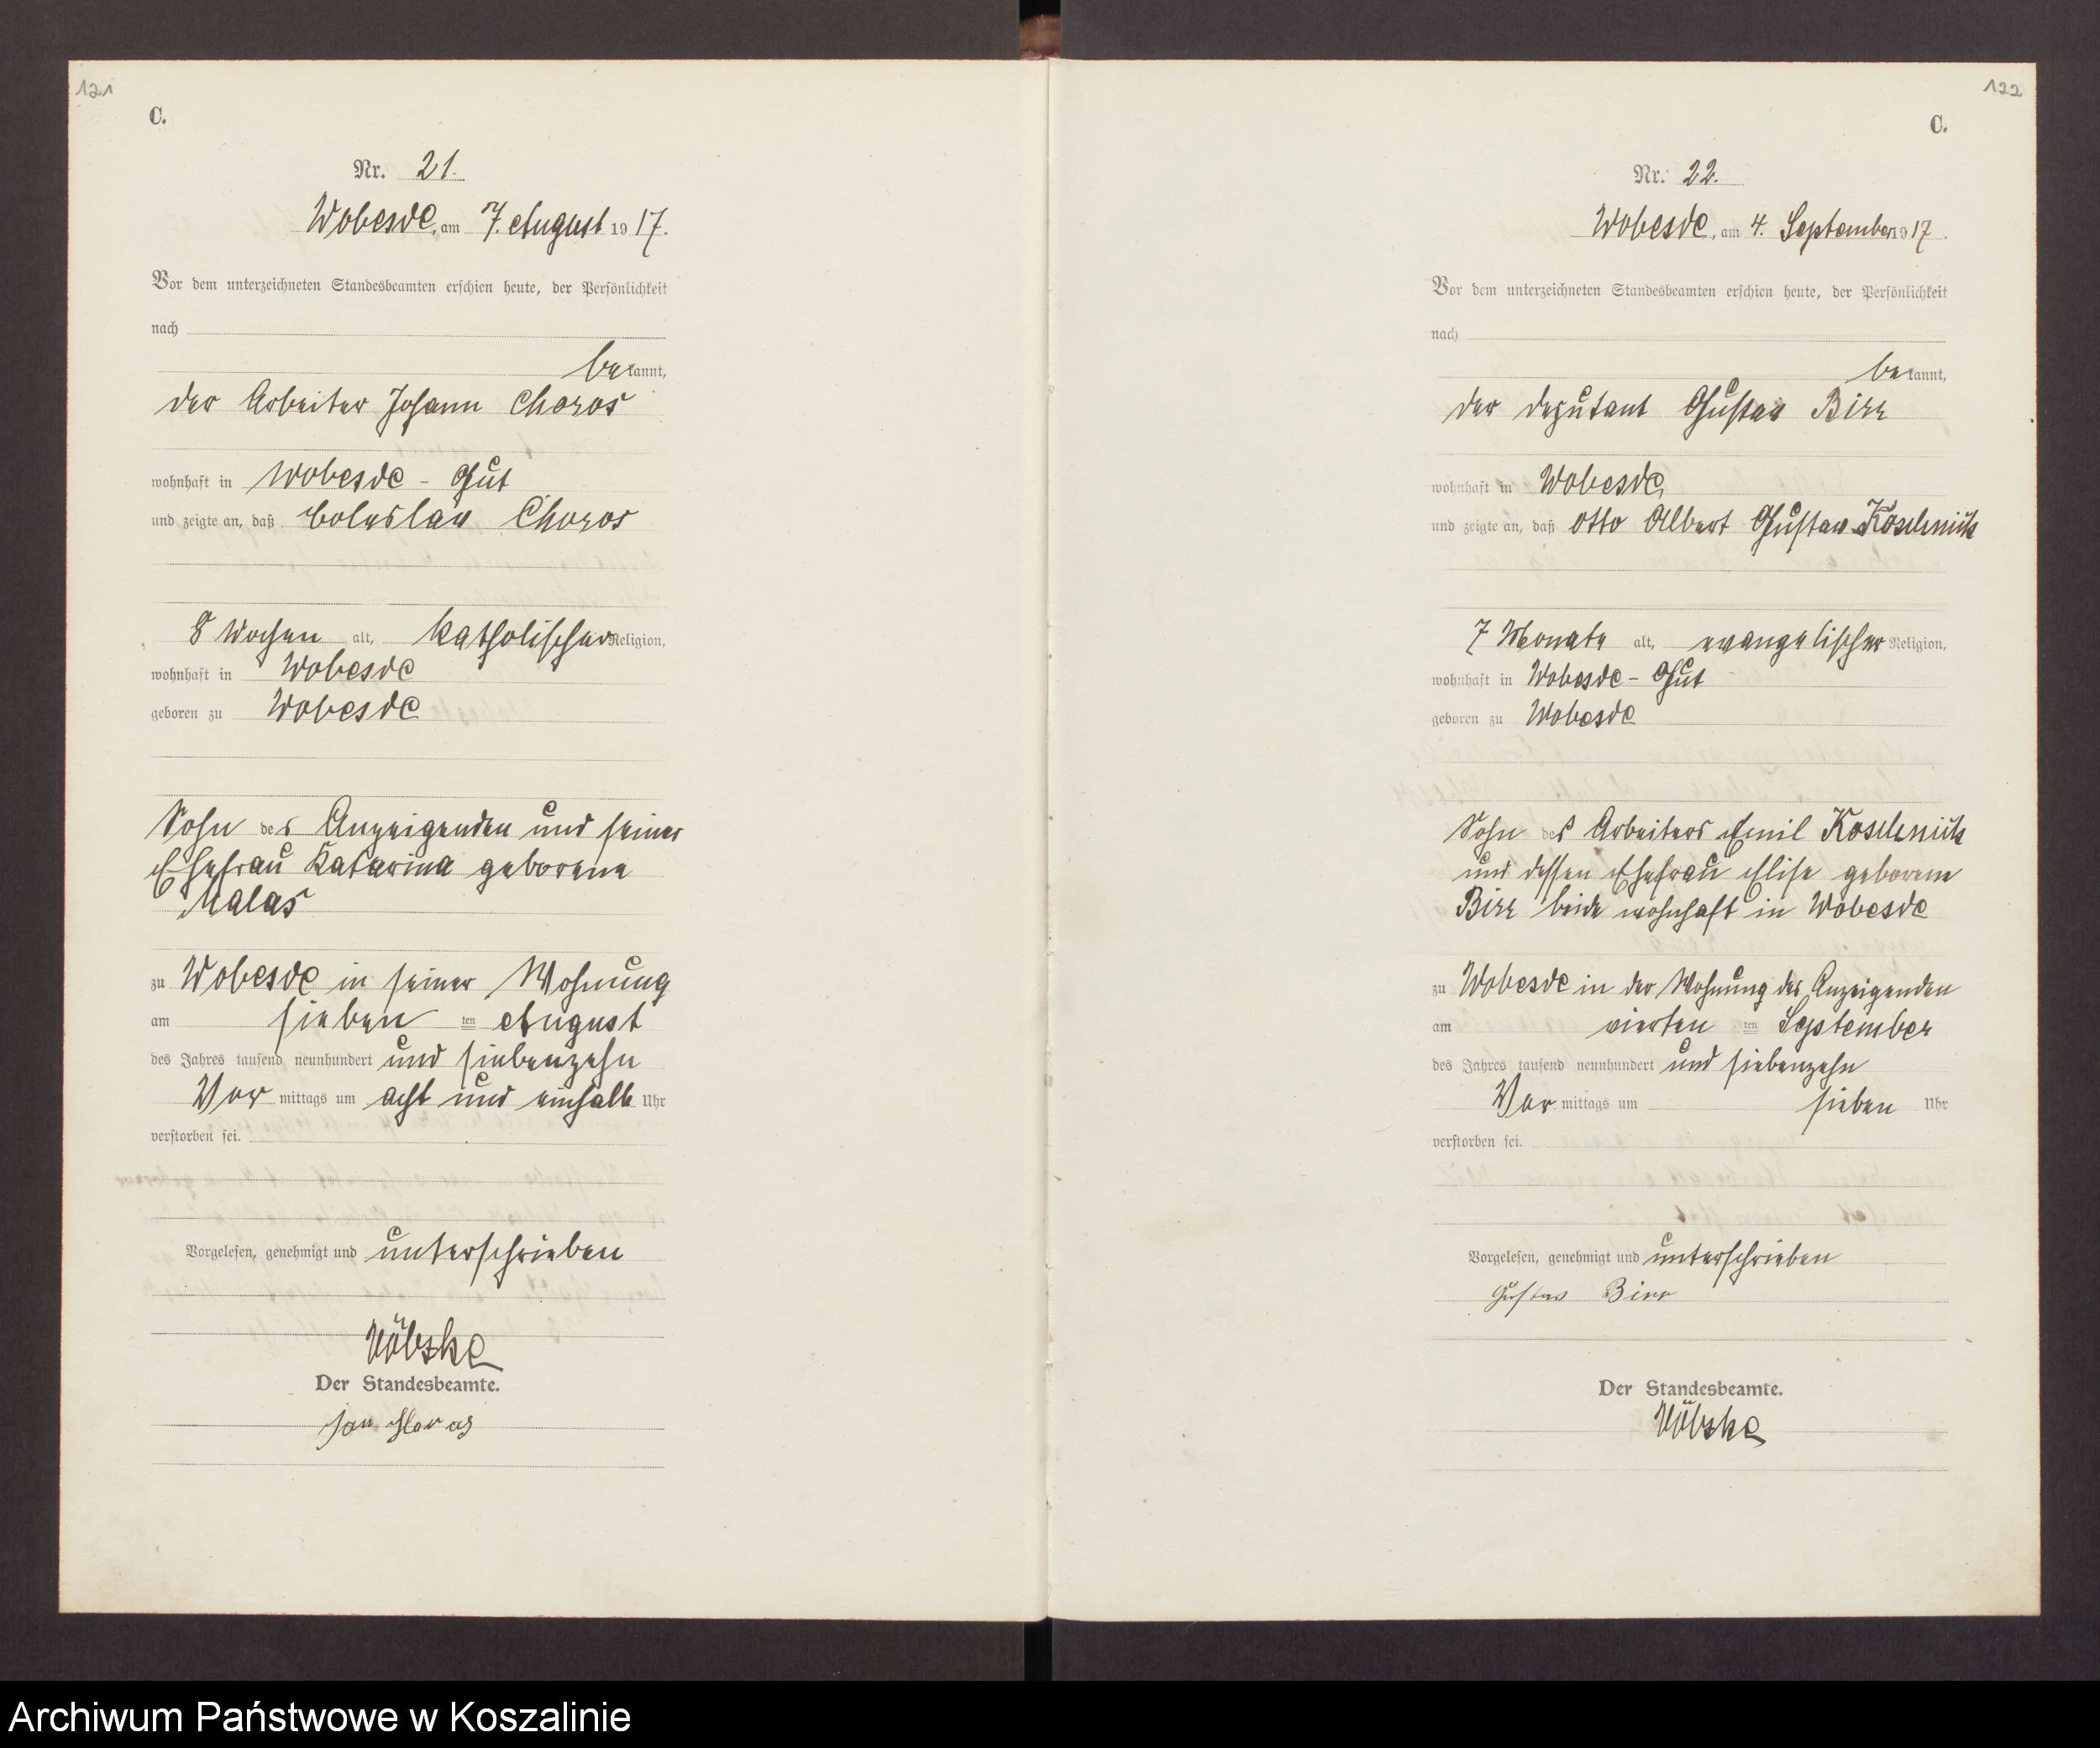 121
C.
Nr. 21.
Wobesde, am 7. August 1917.
Vor dem unterzeichneten Standesbeamten erschien heute, der Persönlichkeit
nach
bekannt,
der Arbeiter Johann Choros
wohnhaft in Wobesde - Gut
und zeigte an, daß Boleslav Choros
8 Wochen alt, katholischer Religion,
wohnhaft in Wobesde
geboren zu Wobesde
Sohn des Anzeigenden und seiner
Ehefrau Katarina geborene
Malas
zu Wobesde in seiner Wohnung
am sieben ten August
des Jahres tausend neunhundert und siebenzehn
Vor mittags um acht und einhalb Uhr
verstorben sei.
Vorgelesen, genehmigt und unterschrieben
Der Standesbeamte.
Jan
122
C.
Nr. 22.
Wobesde, am 4. September 1917.
Vor dem unterzeichneten Standesbeamten erschien heute, der Persönlichkeit
nach
bekannt,
der Deputant Gustav Birr
wohnhaft in Wobesde
und zeigte an, daß Otto Albert Gustav Koschnick
7 Monate alt, evangelischer Religion,
wohnhaft in Wobesde - Gut
geboren zu Wobesde
Sohn des Arbeiters Emil Koschnick
und dessen Ehefrau Elise geborene
Birr beide wohnhaft in Wobesde
zu Wobesde in der Wohnung des Anzeigenden
am vierten ten September
des Jahres tausend neunhundert und siebenzehn
Vor mittags um sieben Uhr
verstorben sei.
Vorgelesen, genehmigt und unterschrieben
Gustav Birr
Der Standesbeamte.
Archiwum Państwowe w Koszalinie